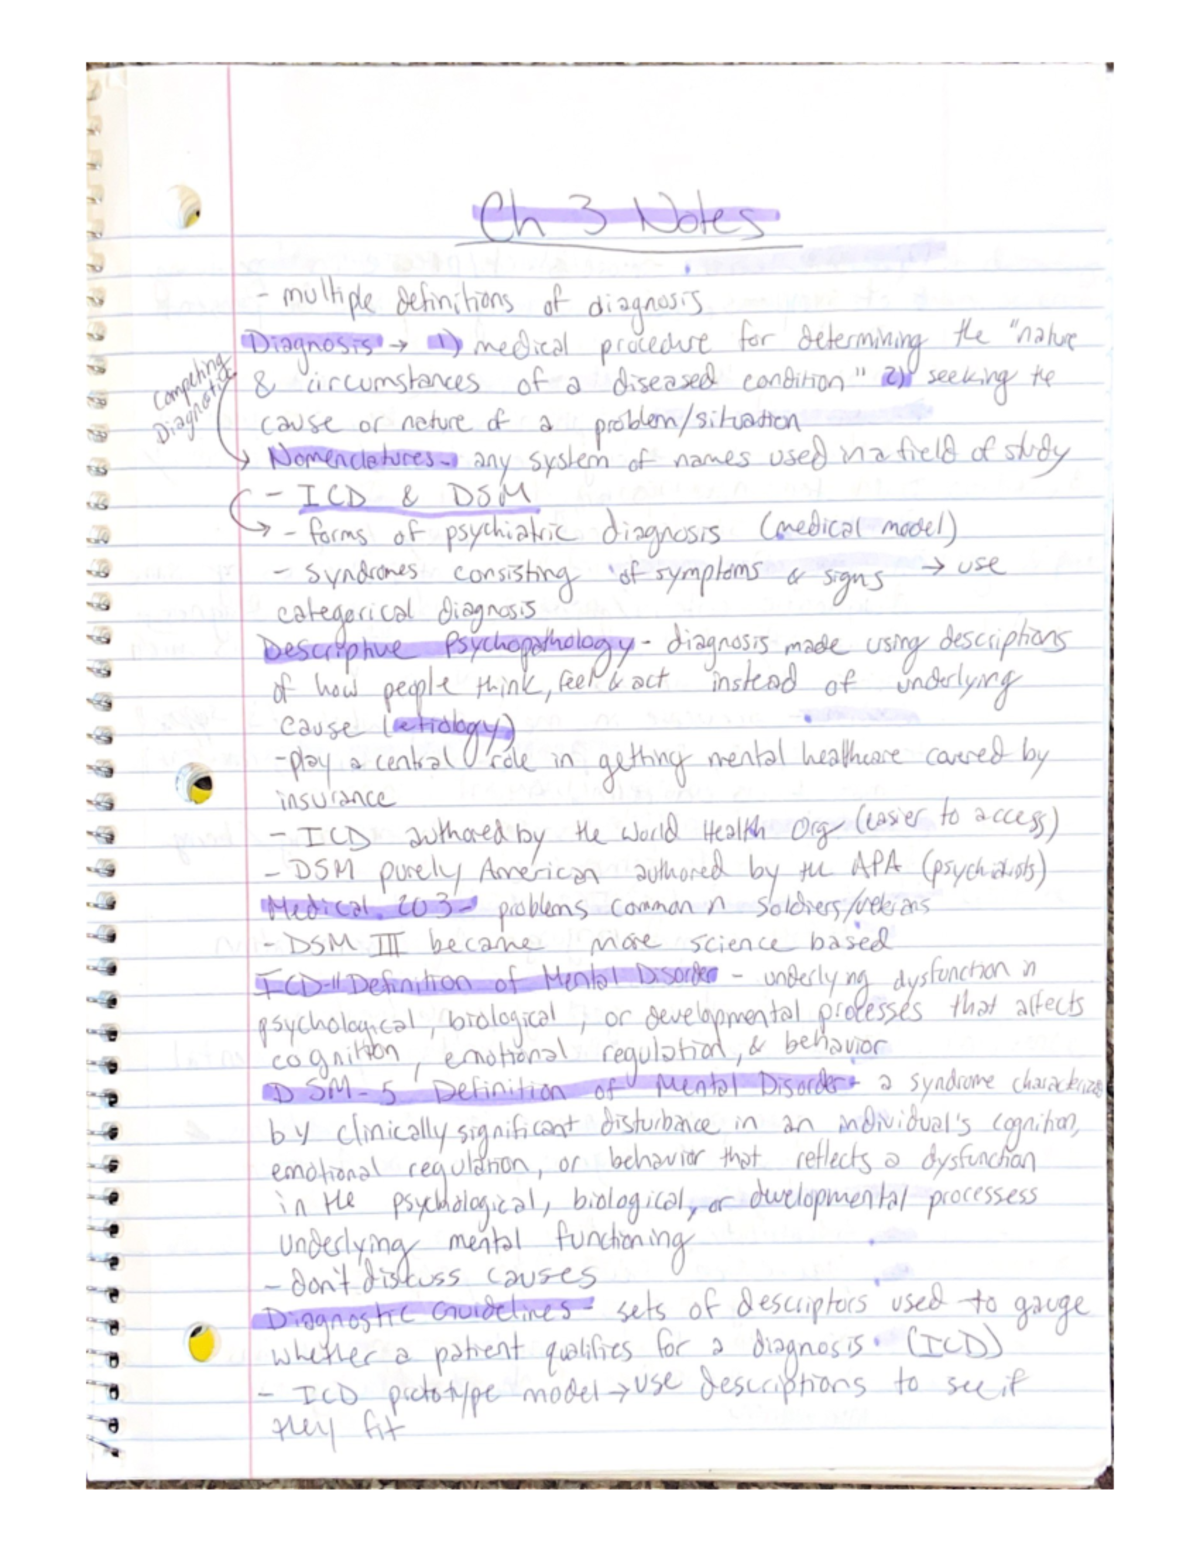 Ch 3 Notes
- multiple definitions of diagnosis
Diagnosis → 1) medical procedure for determining the "nature
& circumstances of a diseased condition" 2) seeking the
cause or nature of a problem/situation
Competing
Diagnostic
Nomenclatures - any system of names used in a field of study
- ICD & DSM
→ - forms of psychiatric diagnosis (medical model)
- Syndromes consisting of symptoms & signs → use
categorical diagnosis
Descriptive Psychopathology - diagnosis made using descriptions
of how people think, feel & act instead of underlying
cause (etiology)
- play a central role in getting mental healthcare covered by
insurance
- ICD authored by the World Health Org (easier to access)
- DSM purely American authored by the APA (psychiatrists)
Medical 203 - problems common n soldiers/vetrians
- DSM III became more science based
ICD-11 Definition of Mental Disorder - underlying dysfunction in
psychological, biological, or developmental processes that affects
cognition, emotional regulation, & behavior
DSM-5 Definition of Mental Disorder - a syndrome characterized
by clinically significant disturbance in an individual's cognition,
emotional regulation, or behavior that reflects a dysfunction
in the psychological, biological, or developmental processess
underlying mental functioning
- don't discuss causes
Diagnostic Guidelines - sets of descriptors used to gauge
whether a patient qualifies for a diagnosis. (ICD)
- ICD prototype model → use descriptions to see if
they fit